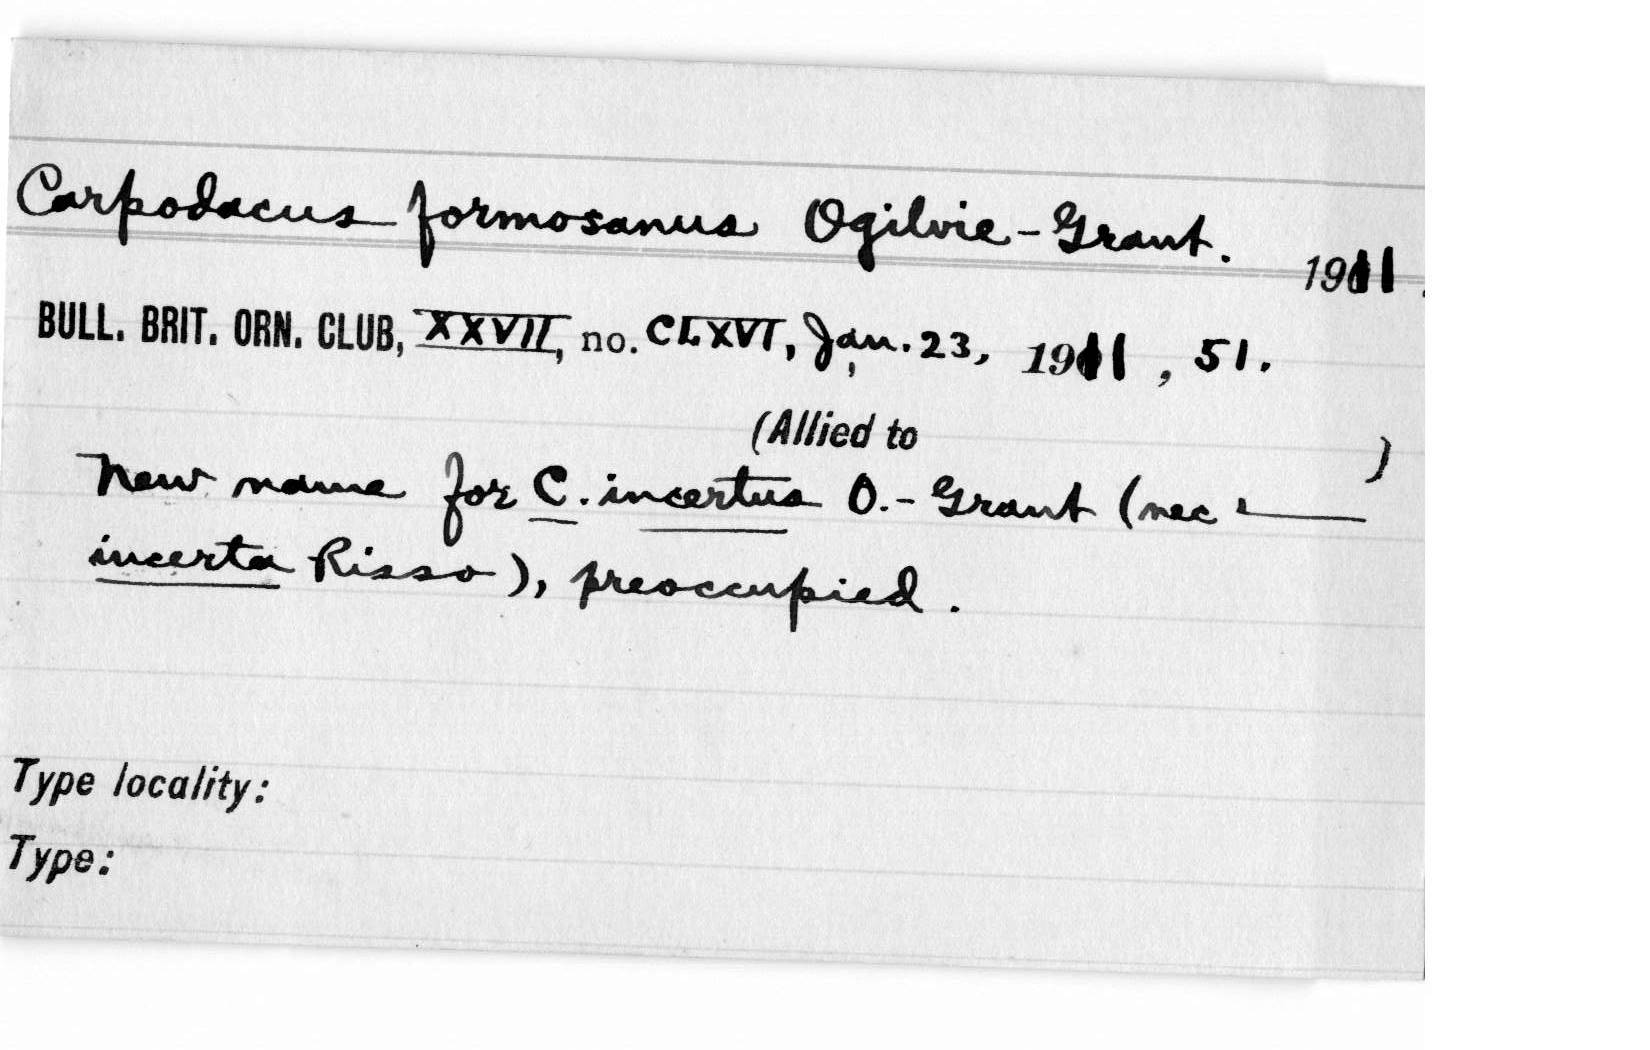 Carpodacus formosanus Ogilvie-Grant. 1911.
BULL. BRIT. ORN. CLUB, XXVII, no. CLXVI, Jan. 23, 1911, 51.
(Allied to )
New name for C. incertus O.-Grant (nec ———
incerta Risso), preoccupied.
Type locality:
Type: